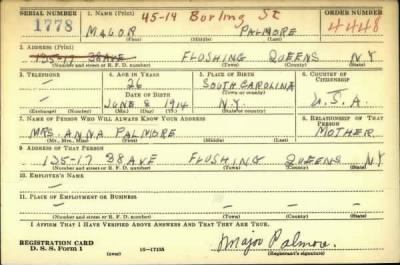 SERIAL NUMBER 1. NAME (Print) 45-14 Burling St ORDER NUMBER
1778 MAJOR PALMORE 4448
(First) (Middle) (Last)
2. ADDRESS (Print)
135-17 38 AVE FLUSHING QUEENS N.Y.
(Number and street or R. F. D. number) (Town) (County) (State)
3. TELEPHONE 4. AGE IN YEARS 5. PLACE OF BIRTH 6. COUNTRY OF CITIZENSHIP
— 26 SOUTH CAROLINA
DATE OF BIRTH (Town or county)
— JUNE 8 1914 N.Y. U.S.A.
(Exchange) (Number) (Mo.) (Day) (Yr.) (State or country)
7. NAME OF PERSON WHO WILL ALWAYS KNOW YOUR ADDRESS 8. RELATIONSHIP OF THAT PERSON
MRS. ANNA PALMORE MOTHER
(Mr., Mrs., Miss) (First) (Middle) (Last)
9. ADDRESS OF THAT PERSON
135-17 38 AVE FLUSHING QUEENS N.Y.
(Number and street or R. F. D. number) (Town) (County) (State)
10. EMPLOYER'S NAME
—
11. PLACE OF EMPLOYMENT OR BUSINESS
—
(Number and street or R. F. D. number) (Town) (County) (State)
I AFFIRM THAT I HAVE VERIFIED ABOVE ANSWERS AND THAT THEY ARE TRUE.
REGISTRATION CARD
D. S. S. Form 1 (over) 16—17155 Major Palmore.
(Registrant's signature)